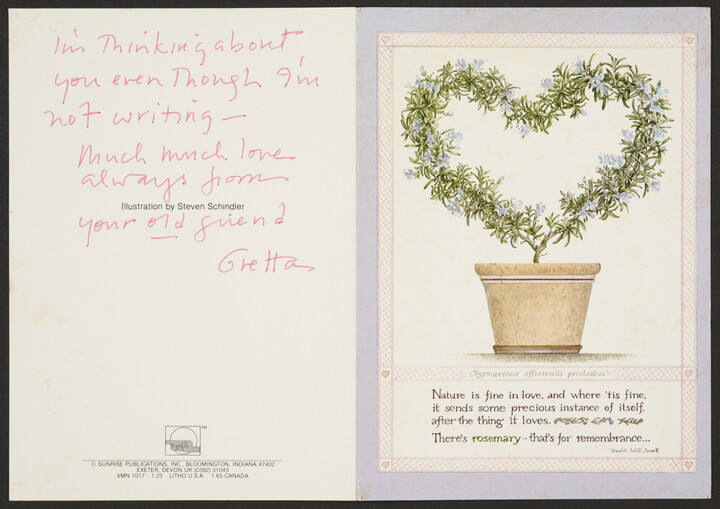 I'm Thinking about
you even Though I'm
not writing —
Much much love
always from
Illustration by Steven Schindler
your old friend
Gretta
TM
© SUNRISE PUBLICATIONS, INC., BLOOMINGTON, INDIANA 47402
EXETER, DEVON UK (0392) 31045
VMN 1017 1.25 LITHO U.S.A. 1.65 CANADA
Rosmarinus officinalis prostratus
Nature is fine in love, and where 'tis fine,
it sends some precious instance of itself,
after the thing it loves.
There's rosemary – that's for remembrance...
Hamlet, Act IV, Scene V